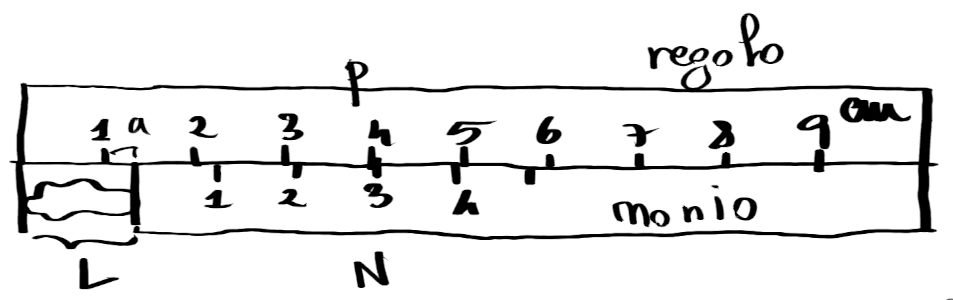 regolo
P
1 a 2 3 4 5 6 7 8 9 cm
1 2 3 4 monio
L N